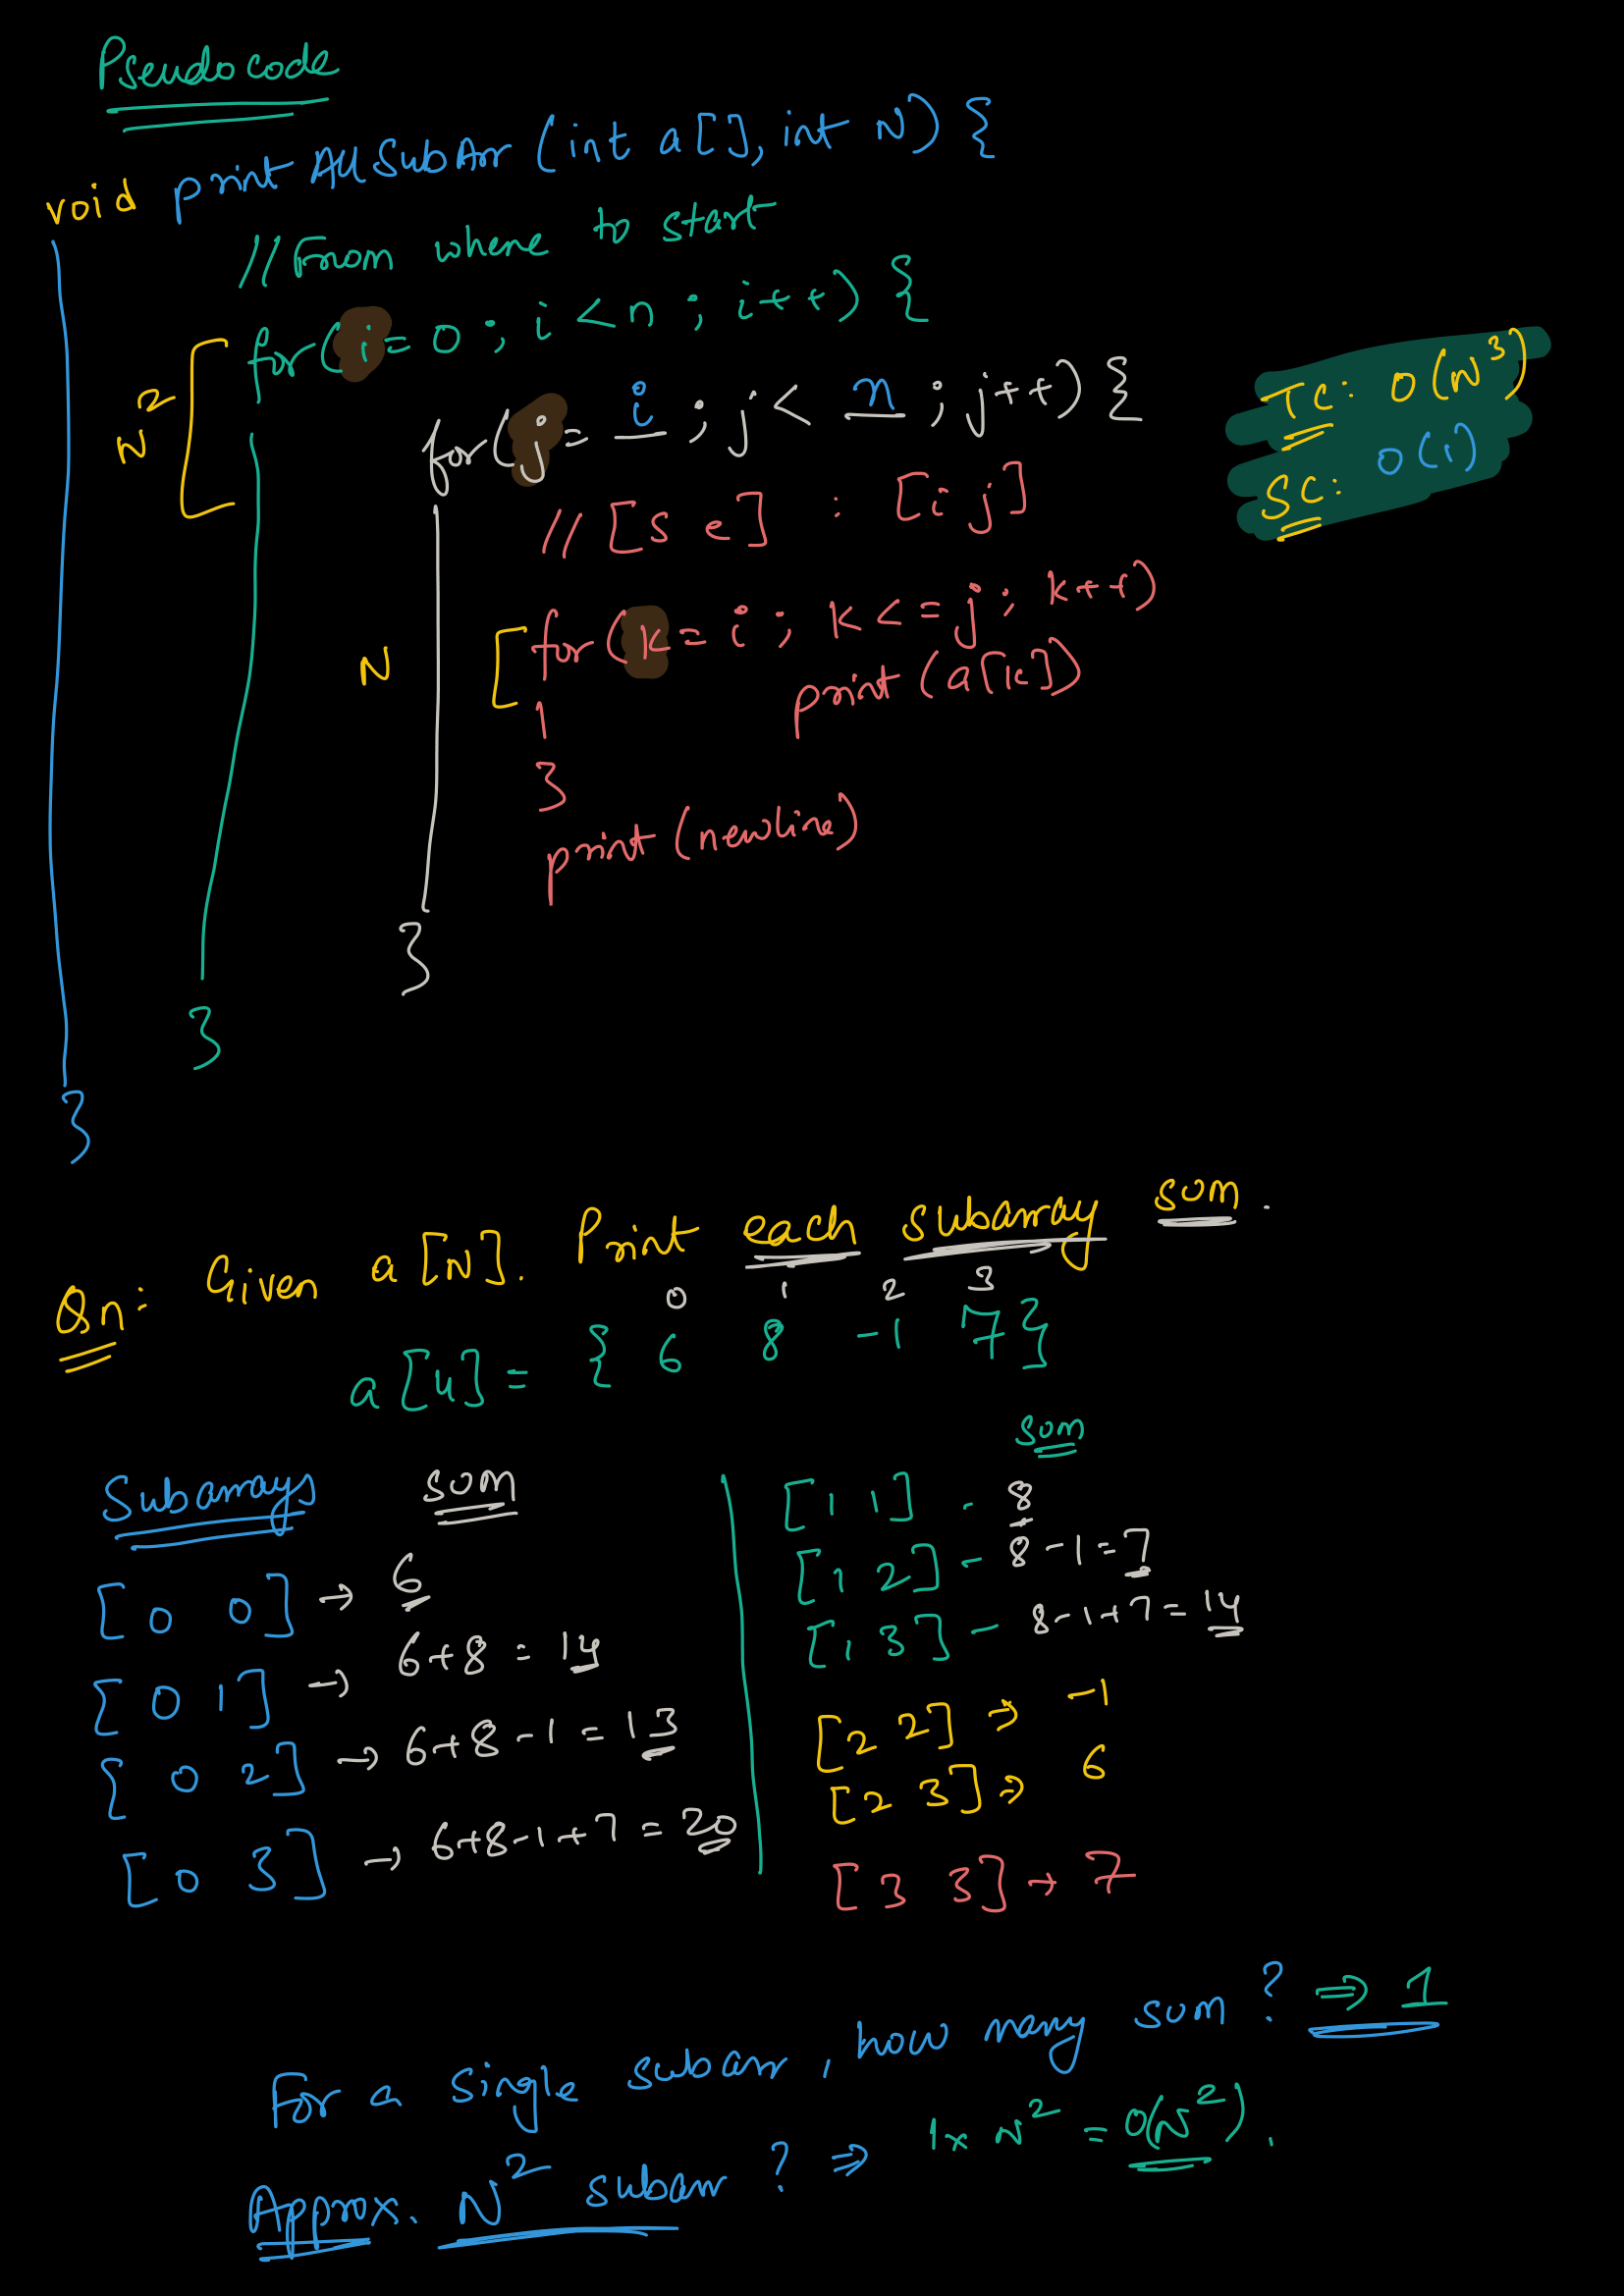 Pseudocode
void printAllSubArr (int a[], int N) {
//From where to start
for(i=0; i<n; i++) {
N²
for(j= i ; j< n ; j++) {
TC: O(N³)
SC: O(1)
// [s e] : [i j]
for(k=i; k<=j; k++)
N
print(a[k])
}
print(newline)
}
}
}
Qn: Given a[N]. Print each subarray sum.
0 1 2 3
a[4]= { 6 8 -1 7}
Subarrays sum
[0 0] → 6
[0 1] → 6+8 = 14
[0 2] → 6+8-1 = 13
[0 3] → 6+8-1+7 = 20
sum
[1 1] - 8
[1 2] - 8-1=7
[1 3] - 8-1+7=14
[2 2] ⇒ -1
[2 3] ⇒ 6
[3 3] → 7
For a single subarr, how many sum? ⇒ 1
Approx. N² subarr? ⇒ 1x N² = O(N²).